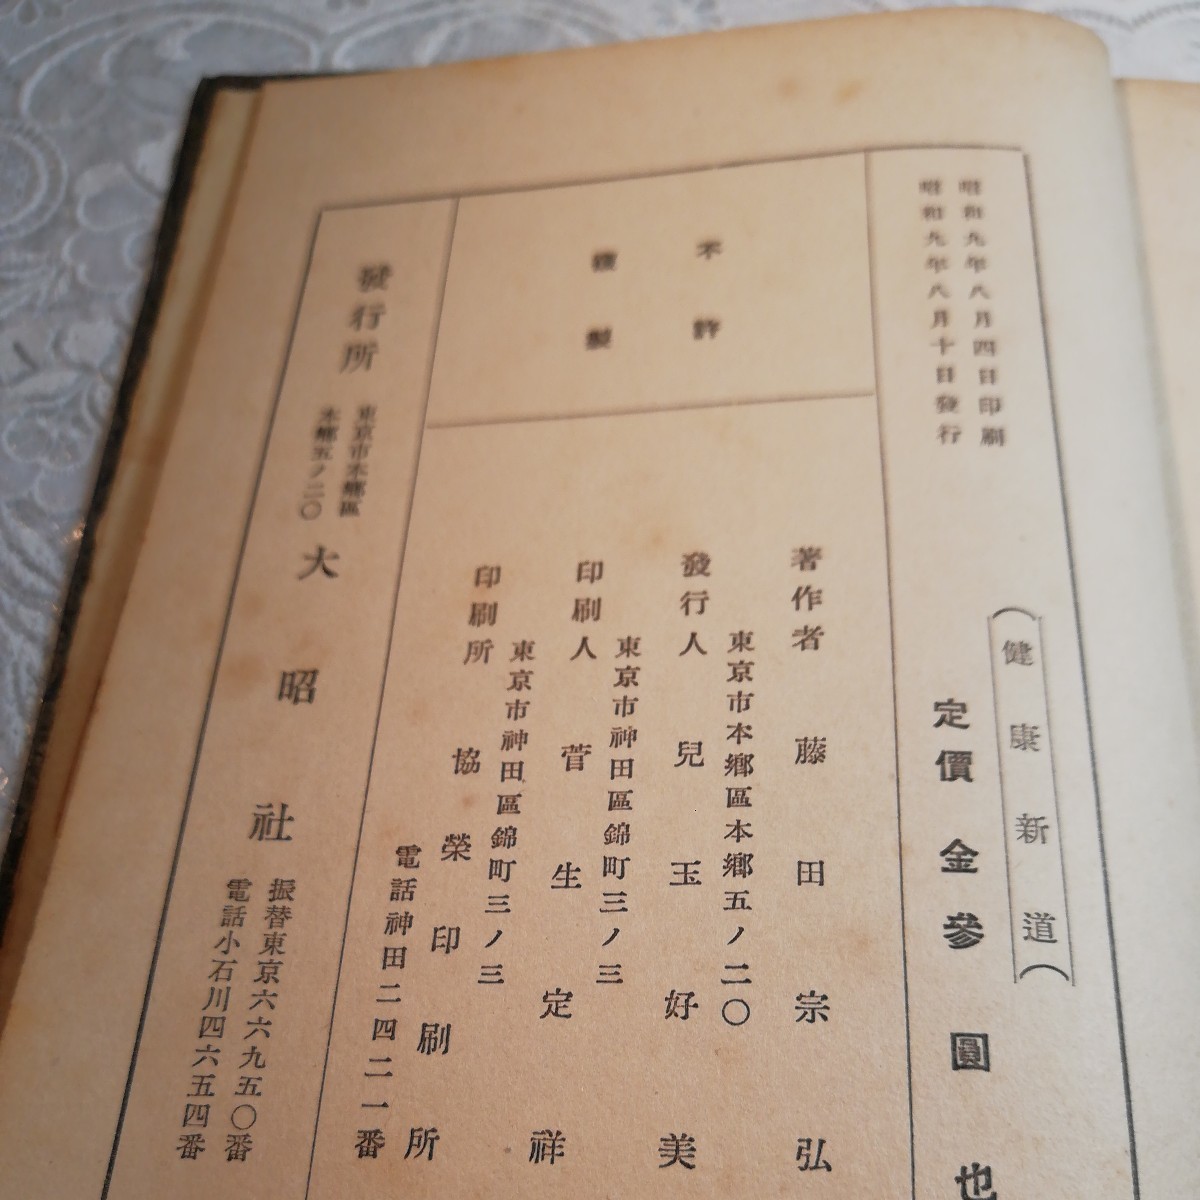 昭和九年八月四日印刷
昭和九年八月十日發行
(健康新道)
定價金參圓也
不許
複製
著作者 藤田宗弘
東京市本鄕區本鄕五ノ二〇
發行人 兒玉好美
東京市神田區錦町三ノ三
印刷人 菅生定祥
東京市神田區錦町三ノ三
印刷所 協榮印刷所
電話神田二四二一番
發行所
東京市本鄕區
本鄕五ノ二〇
大昭社
振替東京六六九五〇番
電話小石川四六五四番